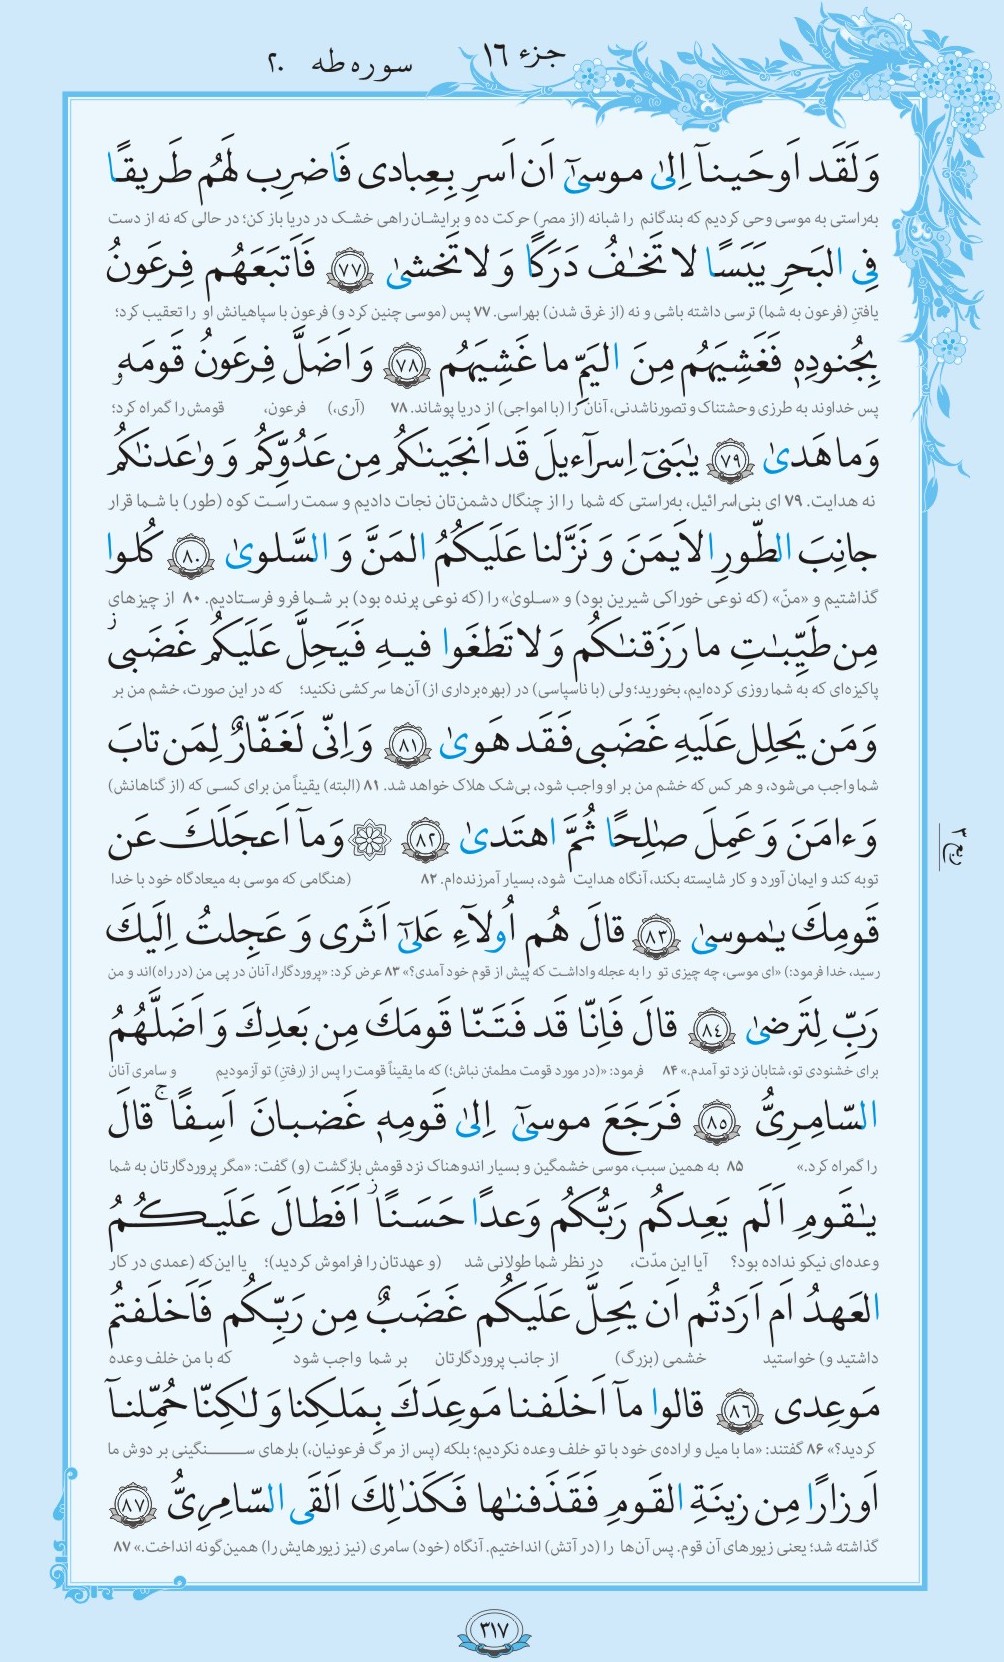 جزء ۱۶
سوره طه ۲۰
وَلَقَد اَوحَينآ اِلىٰ موسىٰٓ اَن اَسرِ بِعِبادى فَاضرِب لَهُم طَريقًا
به‌راستی به موسی وحی کردیم که بندگانم را شبانه (از مصر) حرکت ده و برایشان راهی خشک در دریا باز کن؛ در حالی که نه از دست
فِى البَحرِ يَبَسًا لا تَخٰفُ دَرَكًا وَ لا تَخشىٰ ۷۷ فَاَتبَعَهُم فِرعَونُ
یافتنِ (فرعون به شما) ترسی داشته باشی و نه (از غرق شدن) بهراسی. ۷۷ پس (موسی چنین کرد و) فرعون با سپاهیانش او را تعقیب کرد؛
بِجُنودِهٖ فَغَشِيَهُم مِنَ اليَمِّ ما غَشِيَهُم ۷۸ وَ اَضَلَّ فِرعَونُ قَومَهٗ
پس خداوند به طرزی وحشتناک و تصورناشدنی، آنان را (با امواجی) از دریا پوشاند. ۷۸ (آری،) فرعون، قومش را گمراه کرد؛
وَما هَدىٰ ۷۹ يٰبَنىٓ اِسرآءيلَ قَد اَنجَينٰكُم مِن عَدُوِّكُم وَ وٰعَدنٰكُم
نه هدایت. ۷۹ ای بنی‌اسرائیل، به‌راستی که شما را از چنگال دشمن‌تان نجات دادیم و سمت راست کوه (طور) با شما قرار
جانِبَ الطّورِ الاَيمَنَ وَ نَزَّلنا عَلَيكُمُ المَنَّ وَ السَّلوىٰ ۸۰ كُلوا
گذاشتیم و «منّ» (که نوعی خوراکی شیرین بود) و «سلویٰ» را (که نوعی پرنده بود) بر شما فرو فرستادیم. ۸۰ از چیزهای
مِن طَيِّبٰتِ ما رَزَقنٰكُم وَ لا تَطغَوا فيهِ فَيَحِلَّ عَلَيكُم غَضَبى ز
پاکیزه‌ای که به شما روزی کرده‌ایم، بخورید؛ ولی (با ناسپاسی) در (بهره‌برداری از) آن‌ها سرکشی نکنید؛ که در این صورت، خشم من بر
وَ مَن يَحلِل عَلَيهِ غَضَبى فَقَد هَوىٰ ۸۱ وَ اِنّى لَغَفّارٌ لِمَن تابَ
شما واجب می‌شود، و هر کس که خشم من بر او واجب شود، بی‌شک هلاک خواهد شد. ۸۱ (البته) یقیناً من برای کسی که (از گناهانش)
وَ ءامَنَ وَ عَمِلَ صٰلِحًا ثُمَّ اهتَدىٰ ۸۲ وَمآ اَعجَلَكَ عَن
توبه کند و ایمان آورد و کار شایسته بکند، آنگاه هدایت شود، بسیار آمرزنده‌ام. ۸۲ (هنگامی که موسی به میعادگاه خود با خدا
ربع ۳
قَومِكَ يٰموسىٰ ۸۳ قالَ هُم اُولآءِ عَلىٰٓ اَثَرى وَ عَجِلتُ اِلَيكَ
رسید، خدا فرمود:) «ای موسی، چه چیزی تو را به عجله واداشت که پیش از قوم خود آمدی؟» ۸۳ عرض کرد: «پروردگارا، آنان در پی من (در راه)اند و من
رَبِّ لِتَرضىٰ ۸۴ قالَ فَاِنّا قَد فَتَنّا قَومَكَ مِن بَعدِكَ وَ اَضَلَّهُمُ
برای خشنودی تو، شتابان نزد تو آمدم.» ۸۴ فرمود: «(در مورد قومت مطمئن نباش؛) که ما یقیناً قومت را پس از (رفتنِ) تو آزمودیم و سامری آنان
السّامِرِىُّ ۸۵ فَرَجَعَ موسىٰٓ اِلىٰ قَومِهٖ غَضبانَ اَسِفًا ج قالَ
را گمراه کرد.» ۸۵ به همین سبب، موسی خشمگین و بسیار اندوهناک نزد قومش بازگشت (و) گفت: «مگر پروردگارتان به شما
يٰقَومِ اَلَم يَعِدكُم رَبُّكُم وَعدًا حَسَنًا ز اَفَطالَ عَلَيكُمُ
وعده‌ای نیکو نداده بود؟ آیا این مدّت، در نظر شما طولانی شد (و عهدتان را فراموش کردید)؛ یا این‌که (عمدی در کار
العَهدُ اَم اَرَدتُم اَن يَحِلَّ عَلَيكُم غَضَبٌ مِن رَبِّكُم فَاَخلَفتُم
داشتید و) خواستید خشمی (بزرگ) از جانب پروردگارتان بر شما واجب شود که با من خلف وعده
مَوعِدى ۸۶ قالوا مآ اَخلَفنا مَوعِدَكَ بِمَلكِنا وَ لٰكِنّا حُمِّلنآ
کردید؟» ۸۶ گفتند: «ما با میل و اراده‌ی خود با تو خلف وعده نکردیم؛ بلکه (پس از مرگ فرعونیان،) بارهای سنگینی بر دوش ما
اَوزارًا مِن زينَةِ القَومِ فَقَذَفنٰها فَكَذٰلِكَ اَلقَى السّامِرِىُّ ۸۷
گذاشته شد؛ یعنی زیورهای آن قوم. پس آن‌ها را (در آتش) انداختیم. آنگاه (خود) سامری (نیز زیورهایش را) همین‌گونه انداخت.» ۸۷
۳۱۷